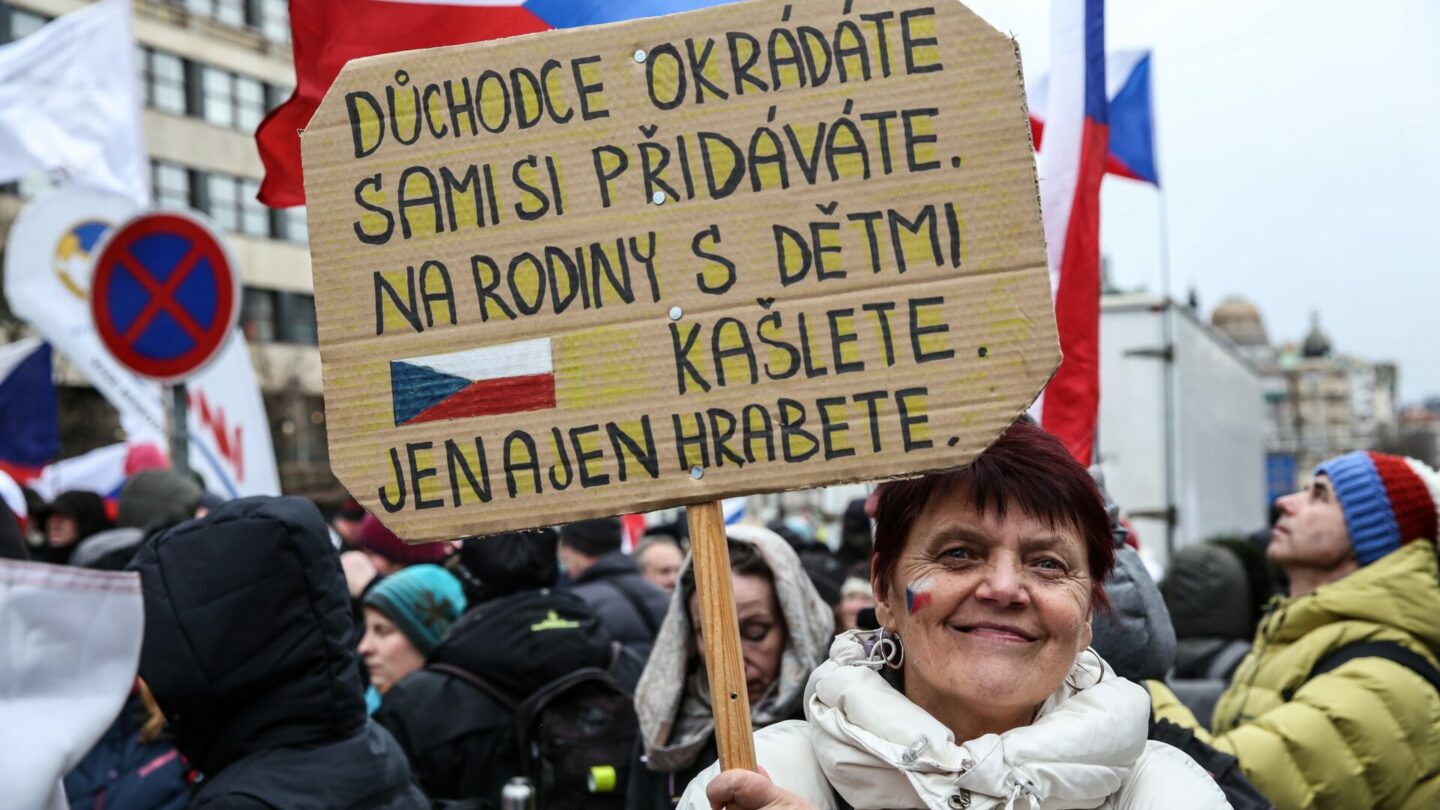 DŮCHODCE OKRÁDÁTE
SAMI SI PŘIDÁVÁTE.
NA RODINY S DĚTMI
KAŠLETE.
JEN A JEN HRABETE.